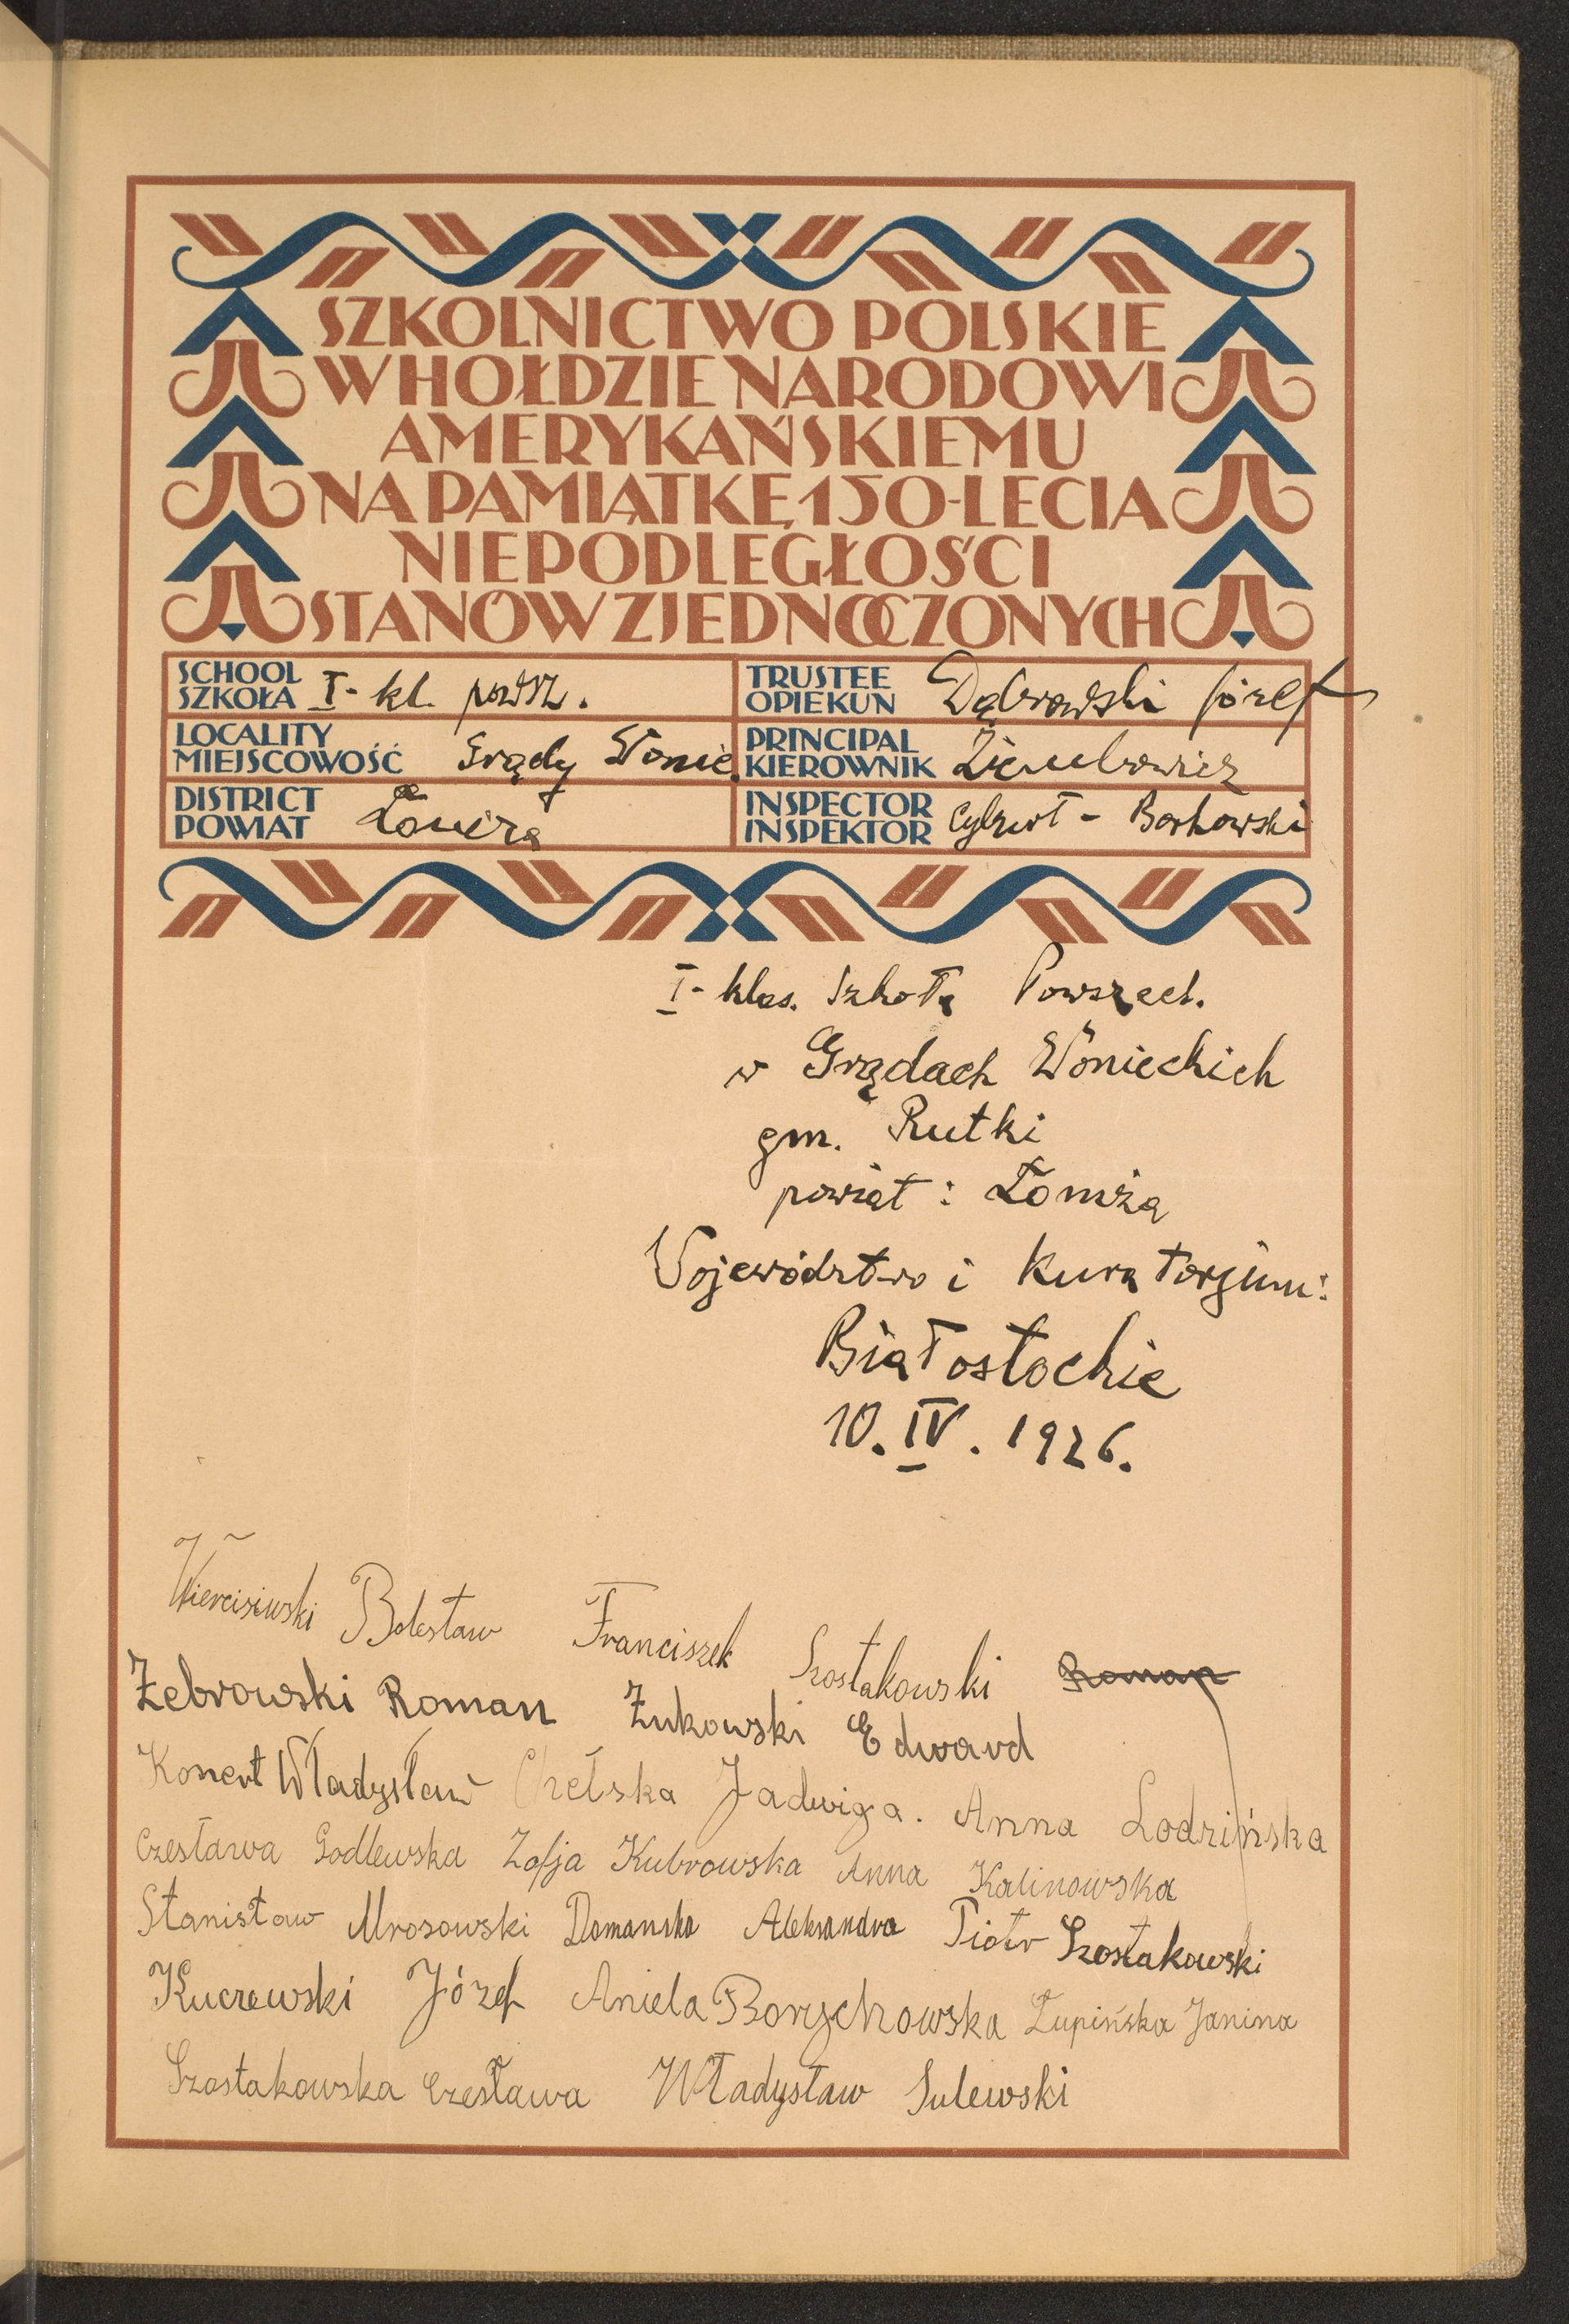 SZKOLNICTWO POLSKIE
W HOŁDZIE NARODOWI
AMERYKAŃSKIEMU
NA PAMIĄTKĘ 150-LECIA
NIEPODLEGŁOŚCI
STANÓW ZJEDNOCZONYCH
SCHOOL
SZKOŁA I-kl. powsz.
TRUSTEE
OPIEKUN Dąbrowski Józef
LOCALITY
MIEJSCOWOŚĆ Grądy Wonie.
PRINCIPAL
KIEROWNIK Ziembowicz
DISTRICT
POWIAT Łomża
INSPECTOR
INSPEKTOR Cybzwot - Borkowski
I-klas. Szkoła Powszech.
w Grądach Woniechich
gm. Rutki
powiat: Łomża
Województwo i Kuratorjum:
Białostockie
10. IV. 1926.
Wiercisiewski Bolesław Franciszek Szostakowski Roman
Żebrowski Roman Żukowski Edward
Konert Władysław Chełska Jadwiga. Anna Łodzińska
Czesława Godlewska Zofja Kubrowska Anna Kalinowska
Stanisław Mrosowski Domanska Aleksandra Piotr Szostakowski
Kuczewski Józef Aniela Borychowska Łupińska Janina
Szostakowska Czesława Władysław Sulewski